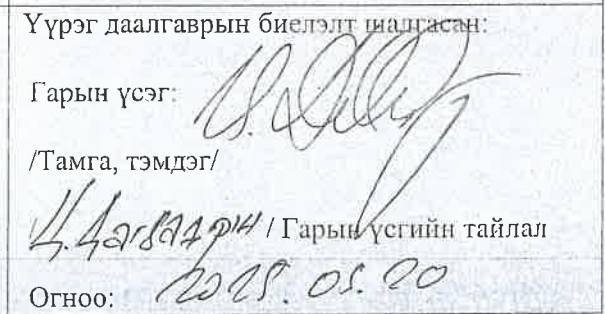 Үүрэг даалгаврын биелэлт шалгасан:
Гарын үсэг:
/Тамга, тэмдэг/
/ Гарын үсгийн тайлал
Огноо: 2025. 05. 20